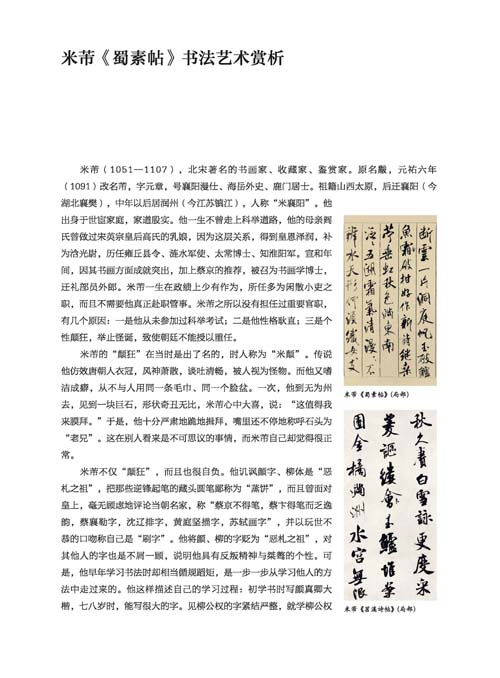 米芾《蜀素帖》书法艺术赏析
米芾（1051—1107），北宋著名的书画家、收藏家、鉴赏家。原名黻，元祐六年
（1091）改名芾，字元章，号襄阳漫仕、海岳外史、鹿门居士。祖籍山西太原，后迁襄阳（今
湖北襄樊），中年以后居润州（今江苏镇江），人称“米襄阳”。他
出身于世宦家庭，家道殷实。他一生不曾走上科举道路，他的母亲阎
氏曾做过宋英宗皇后高氏的乳娘，因为这层关系，得到皇恩泽润，补
为浛光尉，历任雍丘县令、涟水军使、太常博士、知淮阳军。宣和年
间，因其书画方面成就突出，加上蔡京的推荐，被召为书画学博士，
迁礼部员外郎。米芾一生在政绩上少有作为，所任多为闲散小吏之
职，而且不需要他真正赴职管事。米芾之所以没有担任过重要官职，
有几个原因：一是他从未参加过科举考试；二是他性格耿直；三是个
性颠狂，举止怪诞，致使朝廷不能授以重任。
米芾的“颠狂”在当时是出了名的，时人称为“米颠”。传说
他仿效唐朝人衣冠，风神萧散，谈吐清畅，被人视为怪物。而他又嗜
洁成癖，从不与人用同一条毛巾、同一个脸盆。一次，他到无为州
去，见到一块巨石，形状奇丑无比，米芾心中大喜，说：“这值得我
来膜拜。”于是，他十分严肃地跪地揖拜，嘴里还不停地称呼石头为
“老兄”。这在别人看来是不可思议的事情，而米芾自己却觉得很正
常。
米芾不仅“颠狂”，而且也很自负。他讥讽颜字、柳体是“恶
札之祖”，把那些逆锋起笔的藏头圆笔鄙称为“蒸饼”，而且曾面对
皇上，毫无顾虑地评论当朝名家，称“蔡京不得笔，蔡卞得笔而乏逸
韵，蔡襄勒字，沈辽排字，黄庭坚描字，苏轼画字”，并以玩世不
恭的口吻称自己是“刷字”。他将颜、柳的字贬为“恶札之祖”，对
其他人的字也是不屑一顾，说明他具有反叛精神与桀骜的个性。可
是，他早年学习书法时却相当循规蹈矩，是一步一步从学习他人的方
法中走过来的。他这样描述自己的学习过程：初学书时写颜真卿大
楷，七八岁时，能写很大的字。见柳公权的字紧结严整，就学柳公权
断云一片洞庭帆玉破鲈
鱼霜破柑好作新诗继桑
苎垂虹秋色满东南
泛泛五湖霜气清漫漫不
辨水天形何须织女支
米芾《蜀素帖》（局部）
秋久赓白雪咏更度采
菱讴缕会玉鲈堆案
团金橘满洲水宫无限
米芾《苕溪诗帖》（局部）